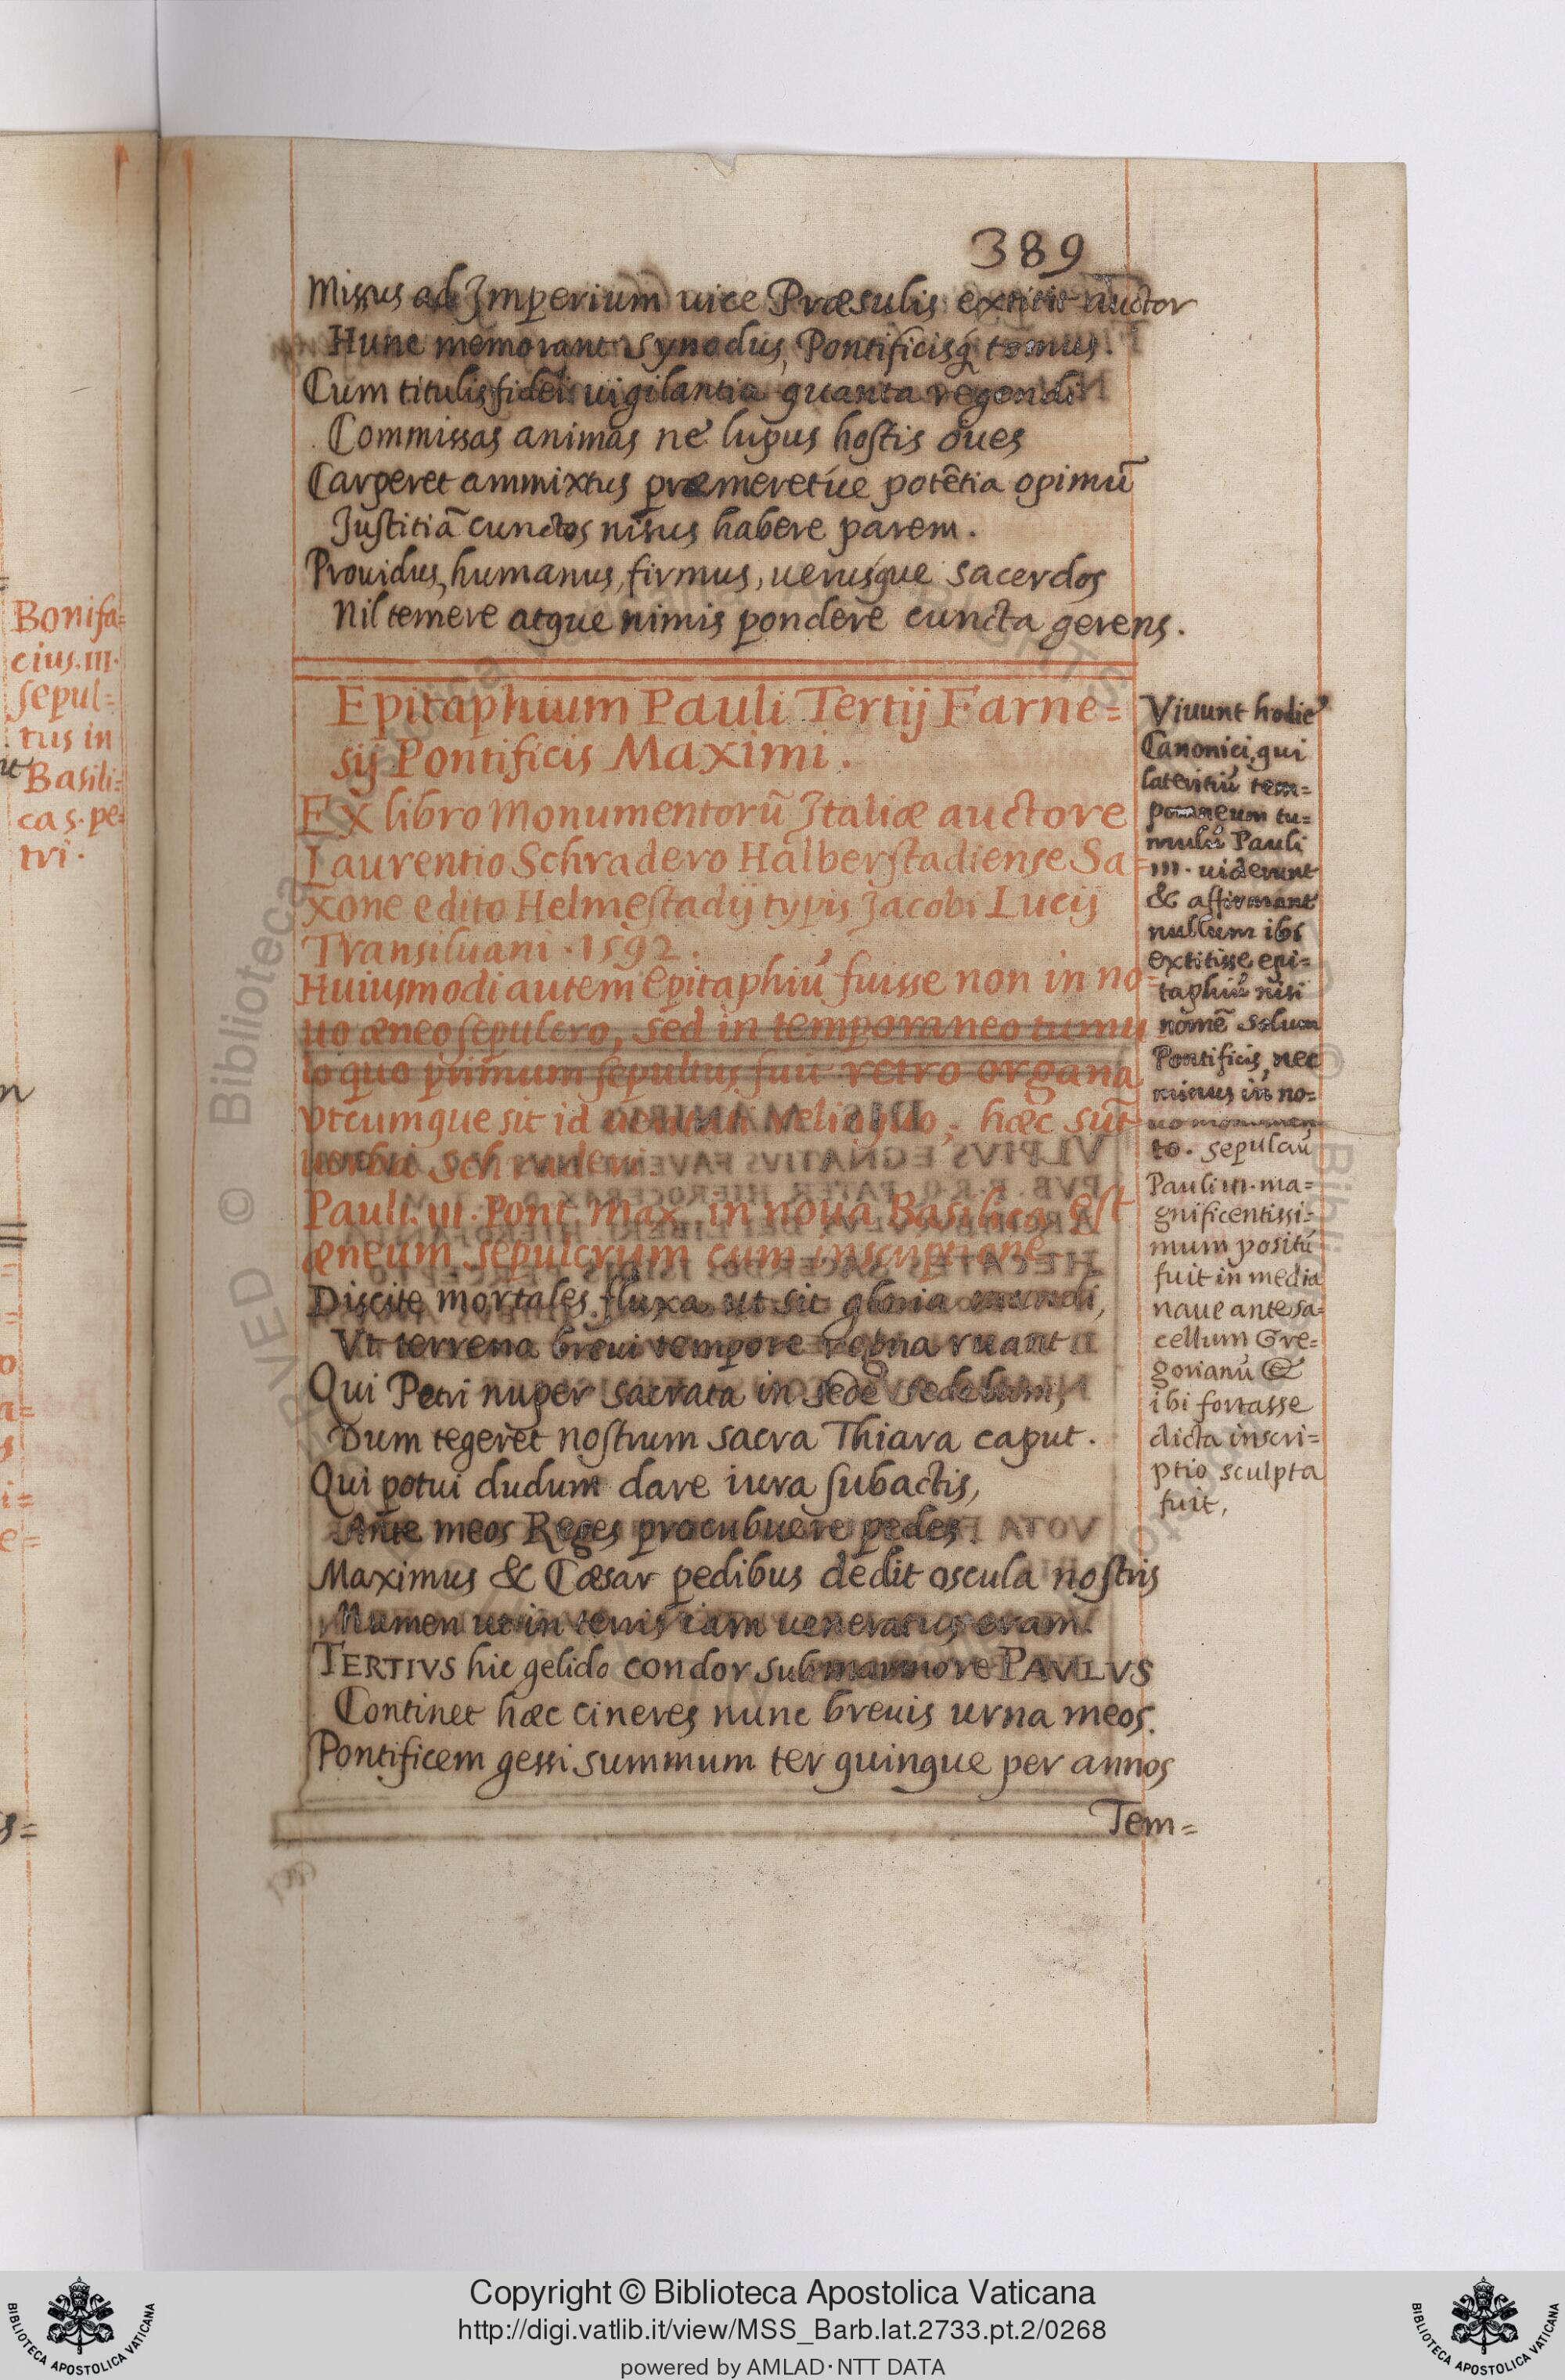 Bonifa=
cius. III.
sepul=
tus in
Basili=
ca s. pe=
tri.
389
Missus ad Imperium uice Præsulis extitit auctor
Hunc memorant Synodus, Pontificisq́ tomus.
Cum titulis fidei uigilantia quanta regendi
Commissas animas ne lupus hostis oues
Carperet ammixtus præmeretúe potētia opimū
Justitiā cunctos nisus habere parem.
Prouidus, humanus, firmus, uerusque sacerdos
Nil temere atque nimis pondere cuncta gerens.
Epitaphium Pauli Tertij Farne=
sij Pontificis Maximi.
Ex libro Monumentorū Italiæ auctore
Laurentio Schradero Halberstadiense Sa=
xone edito Helmestadij typis Jacobi Lucij
Transiluani. 1592.
Huiusmodi autem epitaphiū fuisse non in no=
uo æneo sepulcro, sed in temporaneo tumu
lo quo primum sepultus fuit retro organa
Vtcumque sit id relinquo, hæc sūt
uerba Schraderi.
Pauli. III. Pont. Max. in noua Basilica est
æneum sepulcrum cum inscriptione.
Discite mortales fluxa ut sit gloria mundi,
Vt terrena breui tempore regna ruant
Qui Petri nuper sacrata in sede sedebam,
Dum tegeret nostrum sacra Thiara caput.
Qui potui dudum dare iura subactis,
Ante meos Reges procubuere pedes.
Maximus & Cæsar pedibus dedit oscula nostris
Numen ut in terris iam ueneratus eram.
TERTIVS hic gelido condor sub marmore PAVLVS
Continet hæc cineres nunc breuis urna meos.
Pontificem gessi summum ter quinque per annos
Tem=
Viuunt hodie
Canonici, qui
lateritiū tem=
poraneum tu=
mulū Pauli
III. uiderunt
& affirmant
nullum ibi
extitisse epi=
taphiū nisi
nomē solum
Pontificis, nec
minus in no=
uo monumen
to. sepulcrū
Pauli III. ma=
gnificentissi=
mum positū
fuit in media
naue ante sa=
cellum Gre=
gorianū &
ibi fortasse
dicta inscri=
ptio sculpta
fuit,
Copyright © Biblioteca Apostolica Vaticana
http://digi.vatlib.it/view/MSS_Barb.lat.2733.pt.2/0268
powered by AMLAD·NTT DATA
BIBLIOTECA APOSTOLICA VATICANA
BIBLIOTECA APOSTOLICA VATICANA